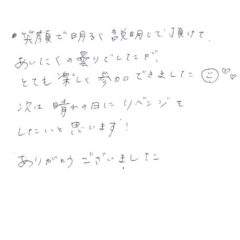 ・笑顔で明るく説明して頂けて、
あいにくの曇りでしたが、
とても楽しく参加できました
次は晴れの日にリベンジで
したいと思います!
ありがとうございました